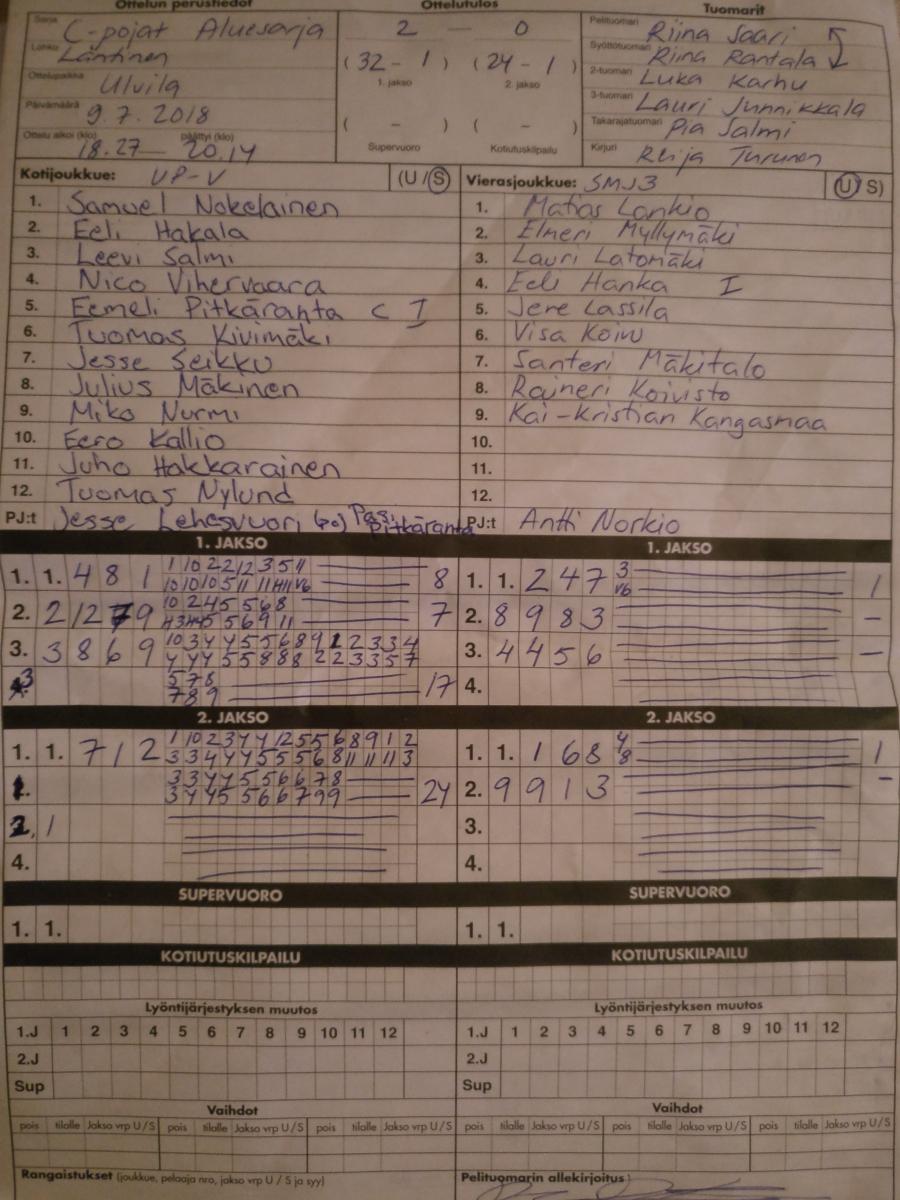 Ottelun perustiedot
Ottelutulos
Tuomarit
Sarja C-pojat Aluesarja
Lohko Läntinen
Ottelupaikka Ulvila
Päivämäärä 9.7.2018
Ottelu alkoi (klo) 18.27 päättyi (klo) 20.14
2 — 0
(32 - 1) (24 - 1)
1. jakso 2. jakso
( - ) ( - )
Supervuoro Kotiutuskilpailu
Pelituomari Riina Saari
Syöttötuomari Riina Rantala
2-tuomari Luka Karhu
3-tuomari Lauri Junnikkala
Takarajatuomari Pia Salmi
Kirjuri Reija Turunen
Kotijoukkue: UP-V (U / S)
1. Samuel Nokelainen
2. Eeli Hakala
3. Leevi Salmi
4. Nico Vihervaara
5. Eemeli Pitkäranta C I
6. Tuomas Kivimäki
7. Jesse Seikku
8. Julius Mäkinen
9. Miko Nurmi
10. Eero Kallio
11. Juho Hakkarainen
12. Tuomas Nylund
PJ:t Jesse Lehesvuori (po) Pasi Pitkäranta
Vierasjoukkue: SMJ3 (U / S)
1. Matias Lankio
2. Elmeri Myllymäki
3. Lauri Latomäki
4. Eeli Hanka I
5. Jere Lassila
6. Visa Koivu
7. Santeri Mäkitalo
8. Raineri Koivisto
9. Kai-Kristian Kangasmaa
10.
11.
12.
PJ:t Antti Norkio
1. JAKSO
1. 1. 4 8 1 8
2. 2 12 9 7
3. 3 8 6 9
5 7 8
7 8 9 17
1. JAKSO
1. 1. 2 4 7 3 1
2. 8 9 8 3 –
3. 4 4 5 6 –
4.
2. JAKSO
1. 1. 7 1 2
24
4.
2. JAKSO
1. 1. 1 6 8 4 8 1
2. 9 9 1 3 -
3.
4.
SUPERVUORO
1. 1.
SUPERVUORO
1. 1.
KOTIUTUSKILPAILU
KOTIUTUSKILPAILU
Lyöntijärjestyksen muutos
1.J 1 2 3 4 5 6 7 8 9 10 11 12
2.J
Sup
Lyöntijärjestyksen muutos
1.J 1 2 3 4 5 6 7 8 9 10 11 12
2.J
Sup
Vaihdot
pois tilalle Jakso vrp U / S pois tilalle Jakso vrp U / S pois tilalle Jakso vrp U / S
Vaihdot
pois tilalle Jakso vrp U / S pois tilalle Jakso vrp U / S pois tilalle Jakso vrp U / S
Rangaistukset (joukkue, pelaaja nro, jakso vrp U / S ja syy)
Pelituomarin allekirjoitus